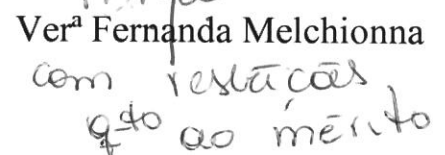 Verª Fernanda Melchionna
com restições
qto ao mérito